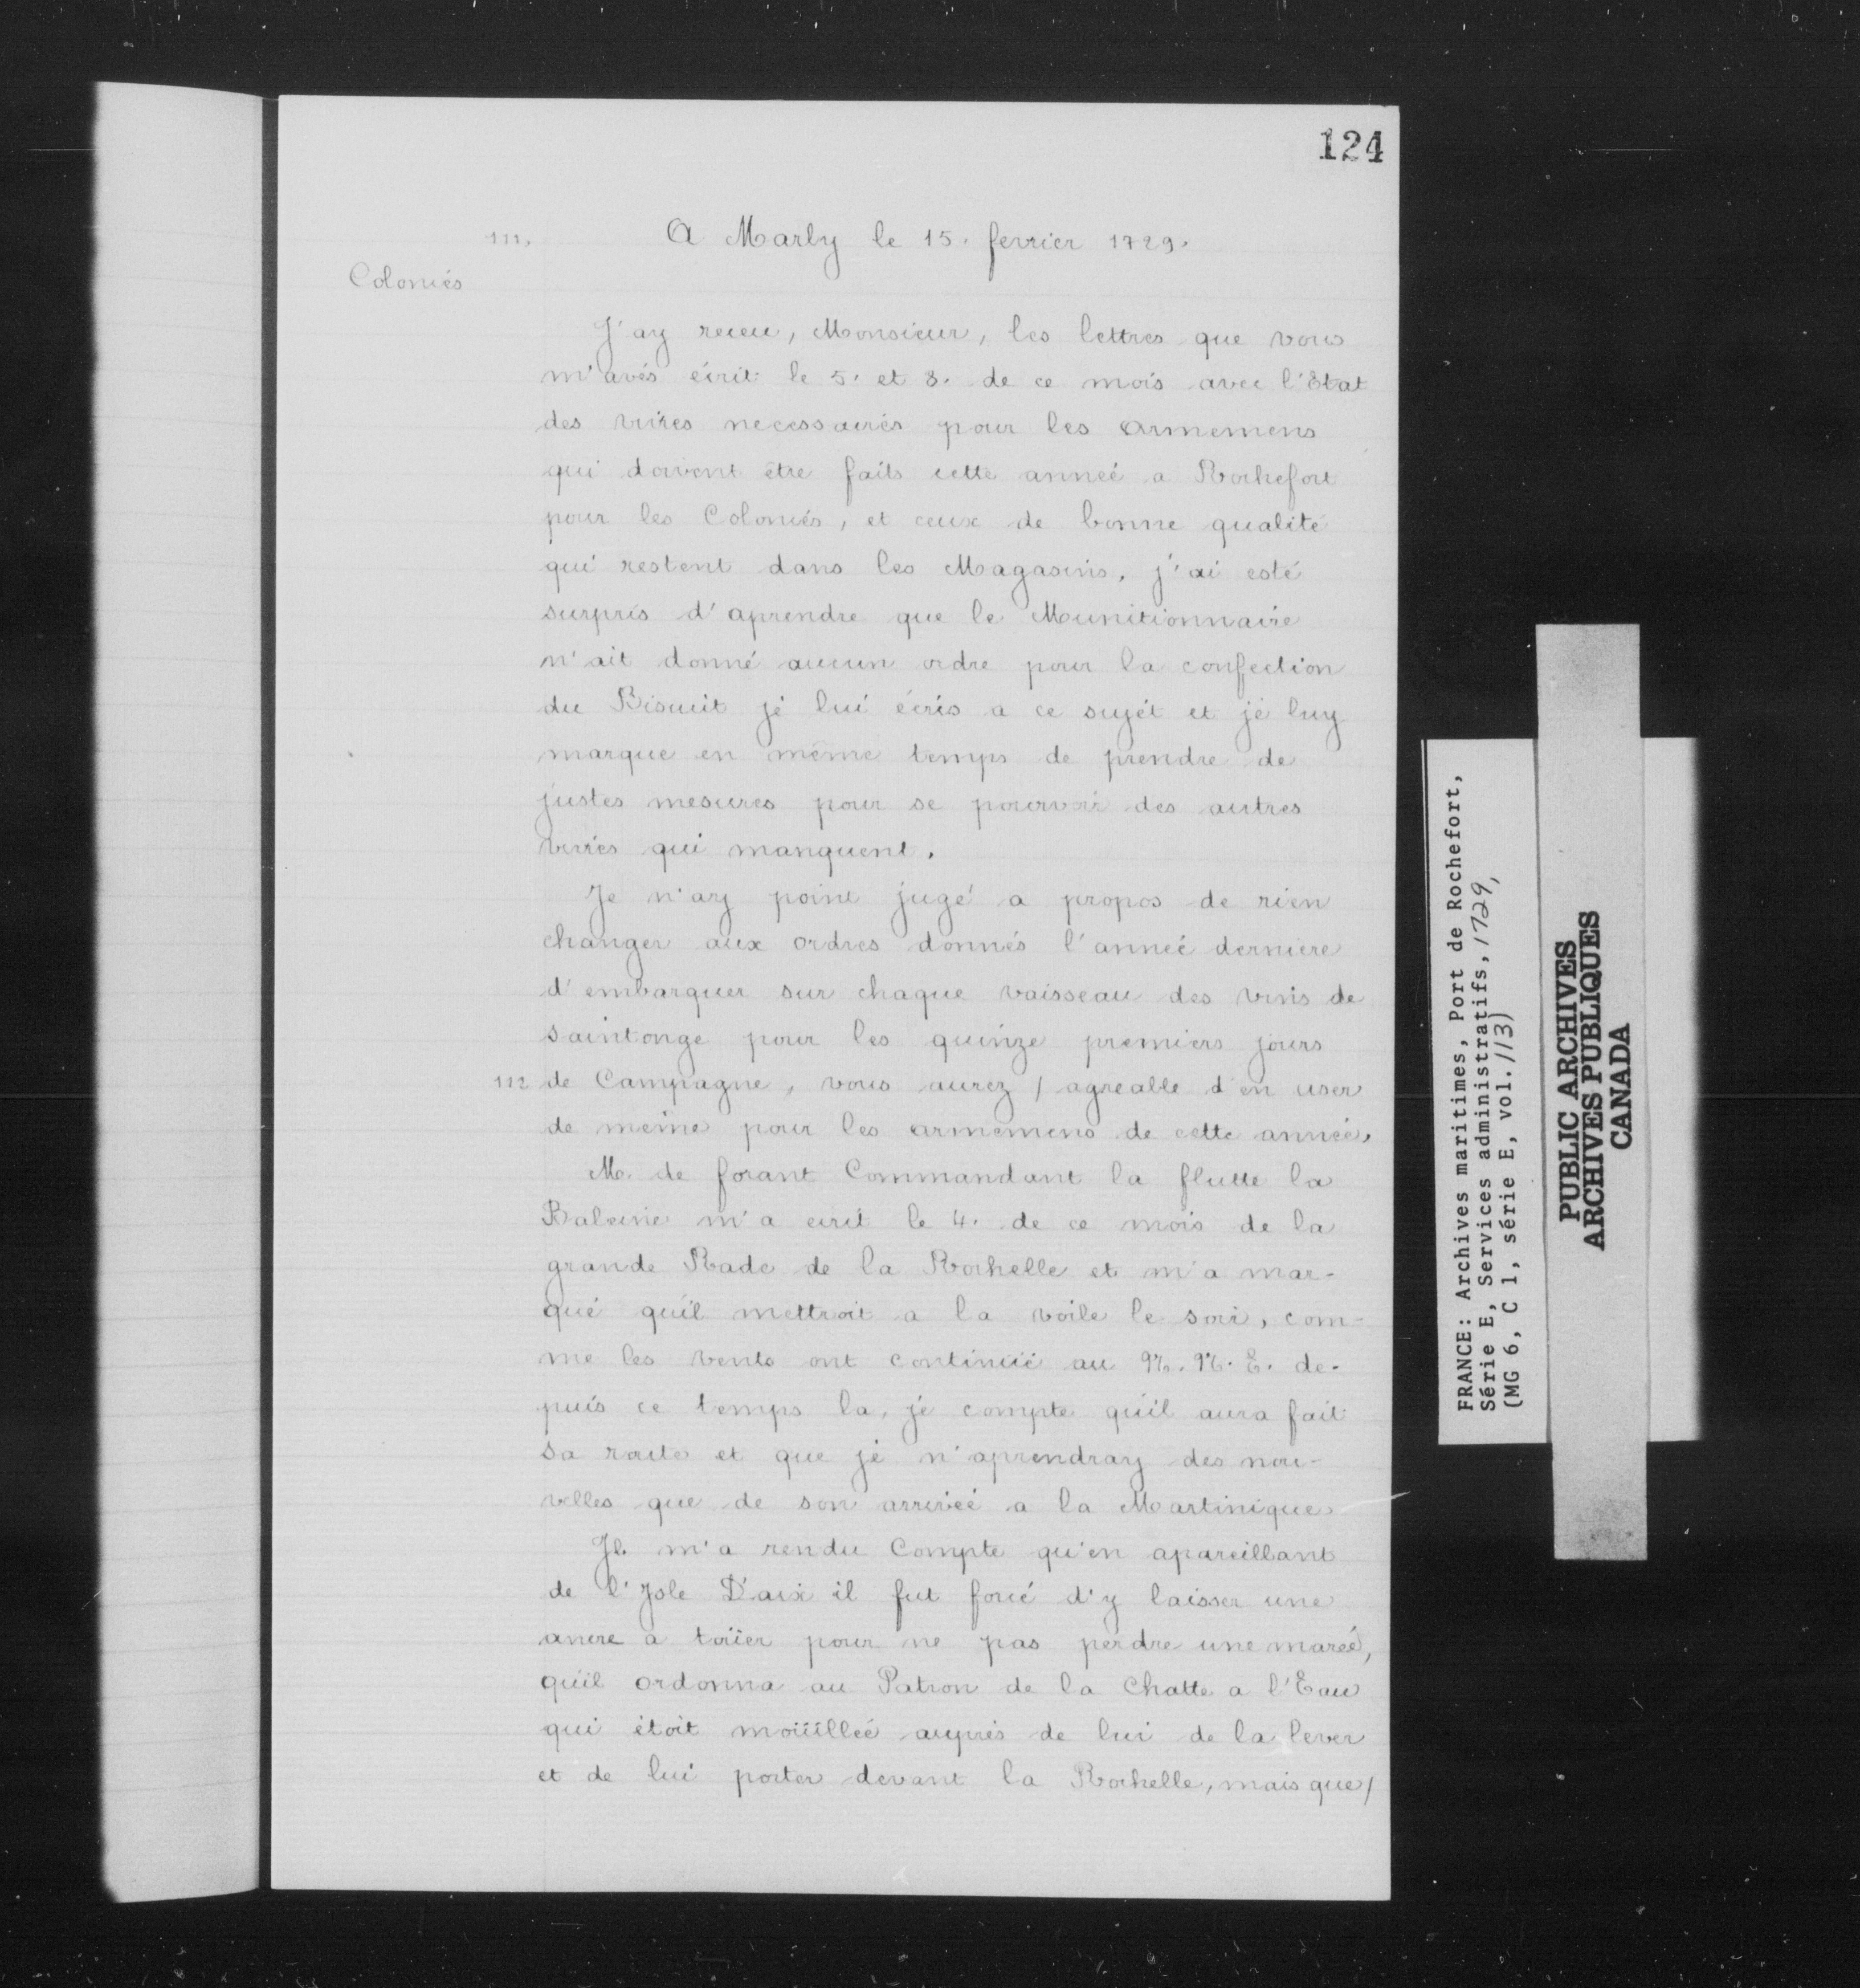 124
111.
A Marly le 15. fevrier 1729.
Coloniés
J'ay receu, Monsieur, les lettres que vous
m'avés écrit le 5. et 8. de ce mois avec l'Etat
des vivres necessaires pour les armemens
qui doivent étre faits cette anneé a Rochefort
pour les Coloniés, et ceux de bonne qualité
qui restent dans les Magasins, j'ai esté
surpris d'aprendre que le Munitionnaire
n'ait donné aucun ordre pour la confection
du Biscuit je lui écris a ce sujét et je luy
marque en même temps de prendre de
justes mesures pour se pourvoir des autres
vivres qui manquent.
Je n'ay point jugé a propos de rien
changer aux ordres donnés l'anneé derniere
d'embarquer sur chaque vaisseau des vins de
saintonge pour les quinze premiers jours
112 de Campagne, vous aurez / agreable d'en user
de même pour les armemens de cette année.
M. de forant Commandant la flutte la
Baleine m'a ecrit le 4. de ce mois de la
grande Rade de la Rochelle et m'a mar-
qué qu'il mettroit a la voile le soir, com-
me les vents ont continüé au N. N. E. de-
puis ce temps la, je compte qu'il aura fait
sa route et que je n'aprendray des nou-
velles que de son arriveé a la Martinique
Jl m'a rendu Compte qu'en apareillant
de l'Jsle D'aix il fut forcé d'y laisser une
ancre a toüer pour ne pas perdre une mareé,
qu'il ordonna au Patron de la Chatte a l'Eau
qui étoit moüilleé auprés de lui de la lever
et de lui porter devant la Rochelle, mais que/
FRANCE: Archives maritimes, Port de Rochefort,
Série E, Services administratifs, 1729,
(MG 6, C 1, série E, vol. 113)
PUBLIC ARCHIVES
ARCHIVES PUBLIQUES
CANADA